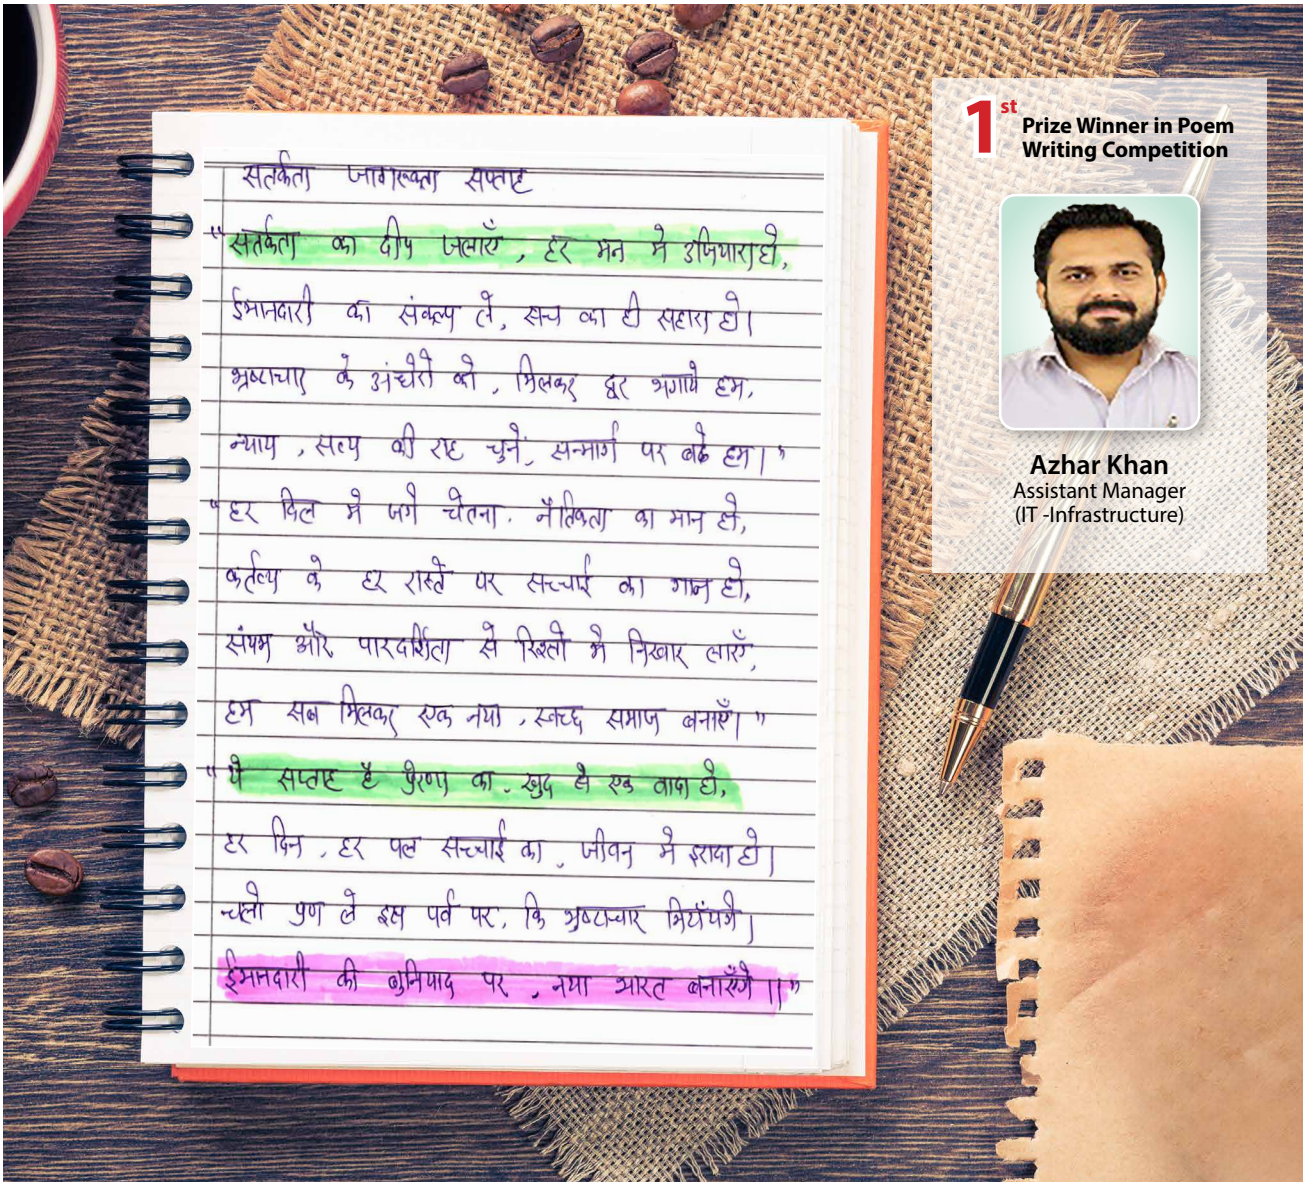 सतर्कता जागरूकता सप्ताह
"सतर्कता का दीप जलाएँ, हर मन मे उजियारा हो,
ईमानदारी का संकल्प ले, सच का ही सहारा हो।
भ्रष्टाचार के अंधेरो को, मिलकर दूर भगाये हम,
न्याय, सत्य की राह चुनें, सन्मार्ग पर बढे हम।"
"हर दिल मे जगे चेतना, नैतिकता का मान हो,
कर्तव्य के हर रास्ते पर सच्चाई का गान हो,
संयम और पारदर्शिता से रिश्तो मे निखार लाएँ,
हम सब मिलकर एक नया, स्वच्छ समाज बनाएँ।"
"ये सप्ताह है प्रेरणा का, खुद से एक वादा हो,
हर दिन, हर पल सच्चाई का, जीवन मे इरादा हो।
चलो प्रण ले इस पर्व पर, कि भ्रष्टाचार मिटाँयगे।
ईमानदारी की बुनियाद पर, नया भारत बनाएँगे।।"
1st
Prize Winner in Poem
Writing Competition
Azhar Khan
Assistant Manager
(IT -Infrastructure)